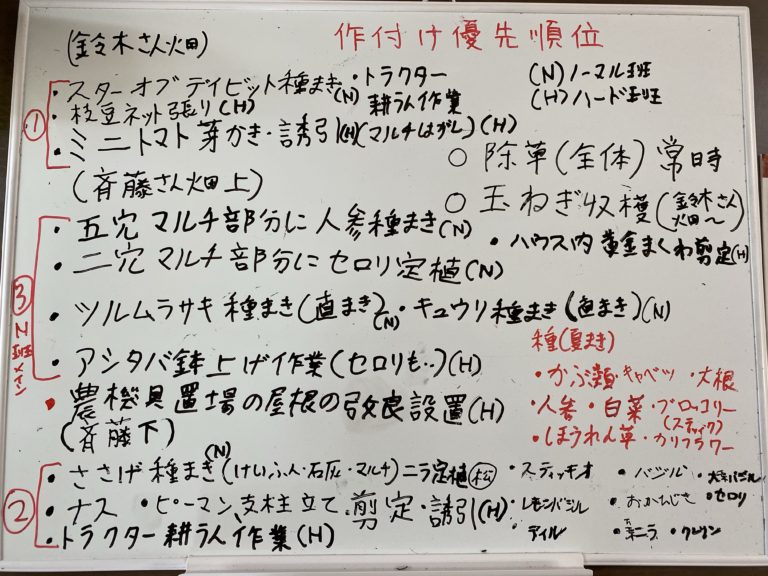 作付け優先順位
(鈴木さん畑)
①
・スターオブデイビット種まき(N) ・トラクター耕うん作業
(N)ノーマル班
(H)ハード班
・枝豆ネット張り(H)
・ミニトマト芽かき・誘引(H)(マルチはがし)(H)
○除草(全体)常日時
○玉ねぎ収穫(鈴木さん畑〜)
・ハウス内黄金まくわ剪定(H)
(斉藤さん畑上)
③N班メイン
・五穴マルチ部分に人参種まき(N)
・二穴マルチ部分にセロリ定植(N)
・ツルムラサキ種まき(直まき)(N)・キュウリ種まき(直まき)(N)
・アシタバ鉢上げ作業(セロリも‥)(H)
・農機具置場の屋根の改良設置(H)
種(夏まき)
・かぶ類・キャベツ・大根
・人参・白菜・ブロッコリー(スティック)
・ほうれん草・カリフラワー
(斉藤下)
②
・ささげ種まき(N)(けいふん・石灰・マルチ)ニラ定植(松)
・ナス・ピーマン、支柱立て、剪定・誘引(H)
・トラクター耕うん作業(H)
・スティッキオ ・バジル
・レモンバジル ・おかひじき ・セロリ
・ディル